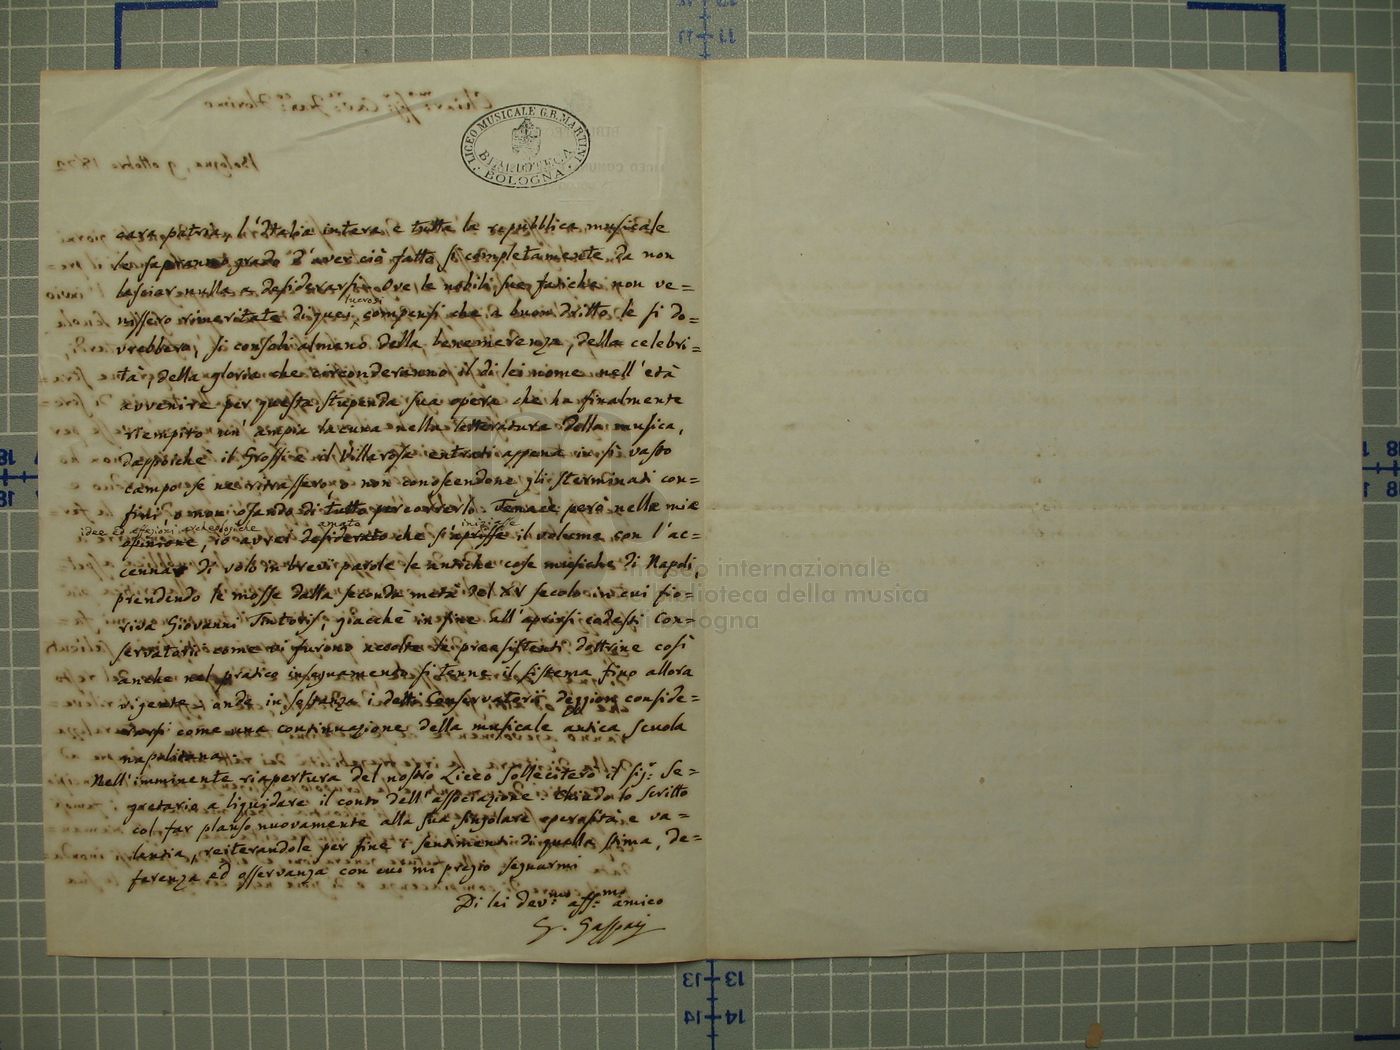 LICEO MUSICALE G.B. MARTINI
BIBLIOTECA
BOLOGNA
cara patria, l'Italia intera e tutta la repubblica musicale
le sapranno grado d'aver ciò fatto sì completamente da non
lasciar nulla a desiderarsi. Ove le nobili sue fatiche non ve=
lucrosi
nissero rimeritate di quei compensi che a buon dritto le si do=
vrebbero, si consoli almeno della benemerenza, della celebri=
tà, della gloria che circonderanno il di lei nome nell'età
avvenire per questa stupenda sua opera che ha finalmente
riempito un'ampia lacuna nella letteratura della musica,
dappoichè il Grossi e il Villarosa entrati appena in sì vasto
campo se ne ritrassero, o non conoscendone gli sterminati con=
fini, o non osando di tutto percorrerlo. Tenace però nelle mie
idee ed affezioni archeologiche amato iniziale
opinione, io avrei desiderato che s'aprisse il volume con l'ac=
cennar di volo in brevi parole le antiche cose musiche di Napoli,
prendendo le mosse dalla seconda metà del XV secolo in cui fio=
riva Giovanni Tintoris; giacchè in fine all'aprirsi codesti Con=
servatorii come vi furono accolte le preesistenti dottrine così
anche nel pratico insegnamento si tenne il sistema fino allora
vigente, onde in sostanza i detti Conservatorii deggion conside=
rarsi come una continuazione della musicale antica scuola
napolitana.
Nell'imminente riapertura del nostro Liceo solleciterò il sig.r Se=
gretario a liquidare il conto dell'associazione. Chiudo lo scritto
col far plauso nuovamente alla sua singolare operosità e va=
lentia, reiterandole per fine i sentimenti di quella stima, de=
ferenza ed osservanza con cui mi pregio segnarmi
Di lei dev.mo aff.mo amico
G. Gaspari
museo internazionale
biblioteca della musica
di bologna